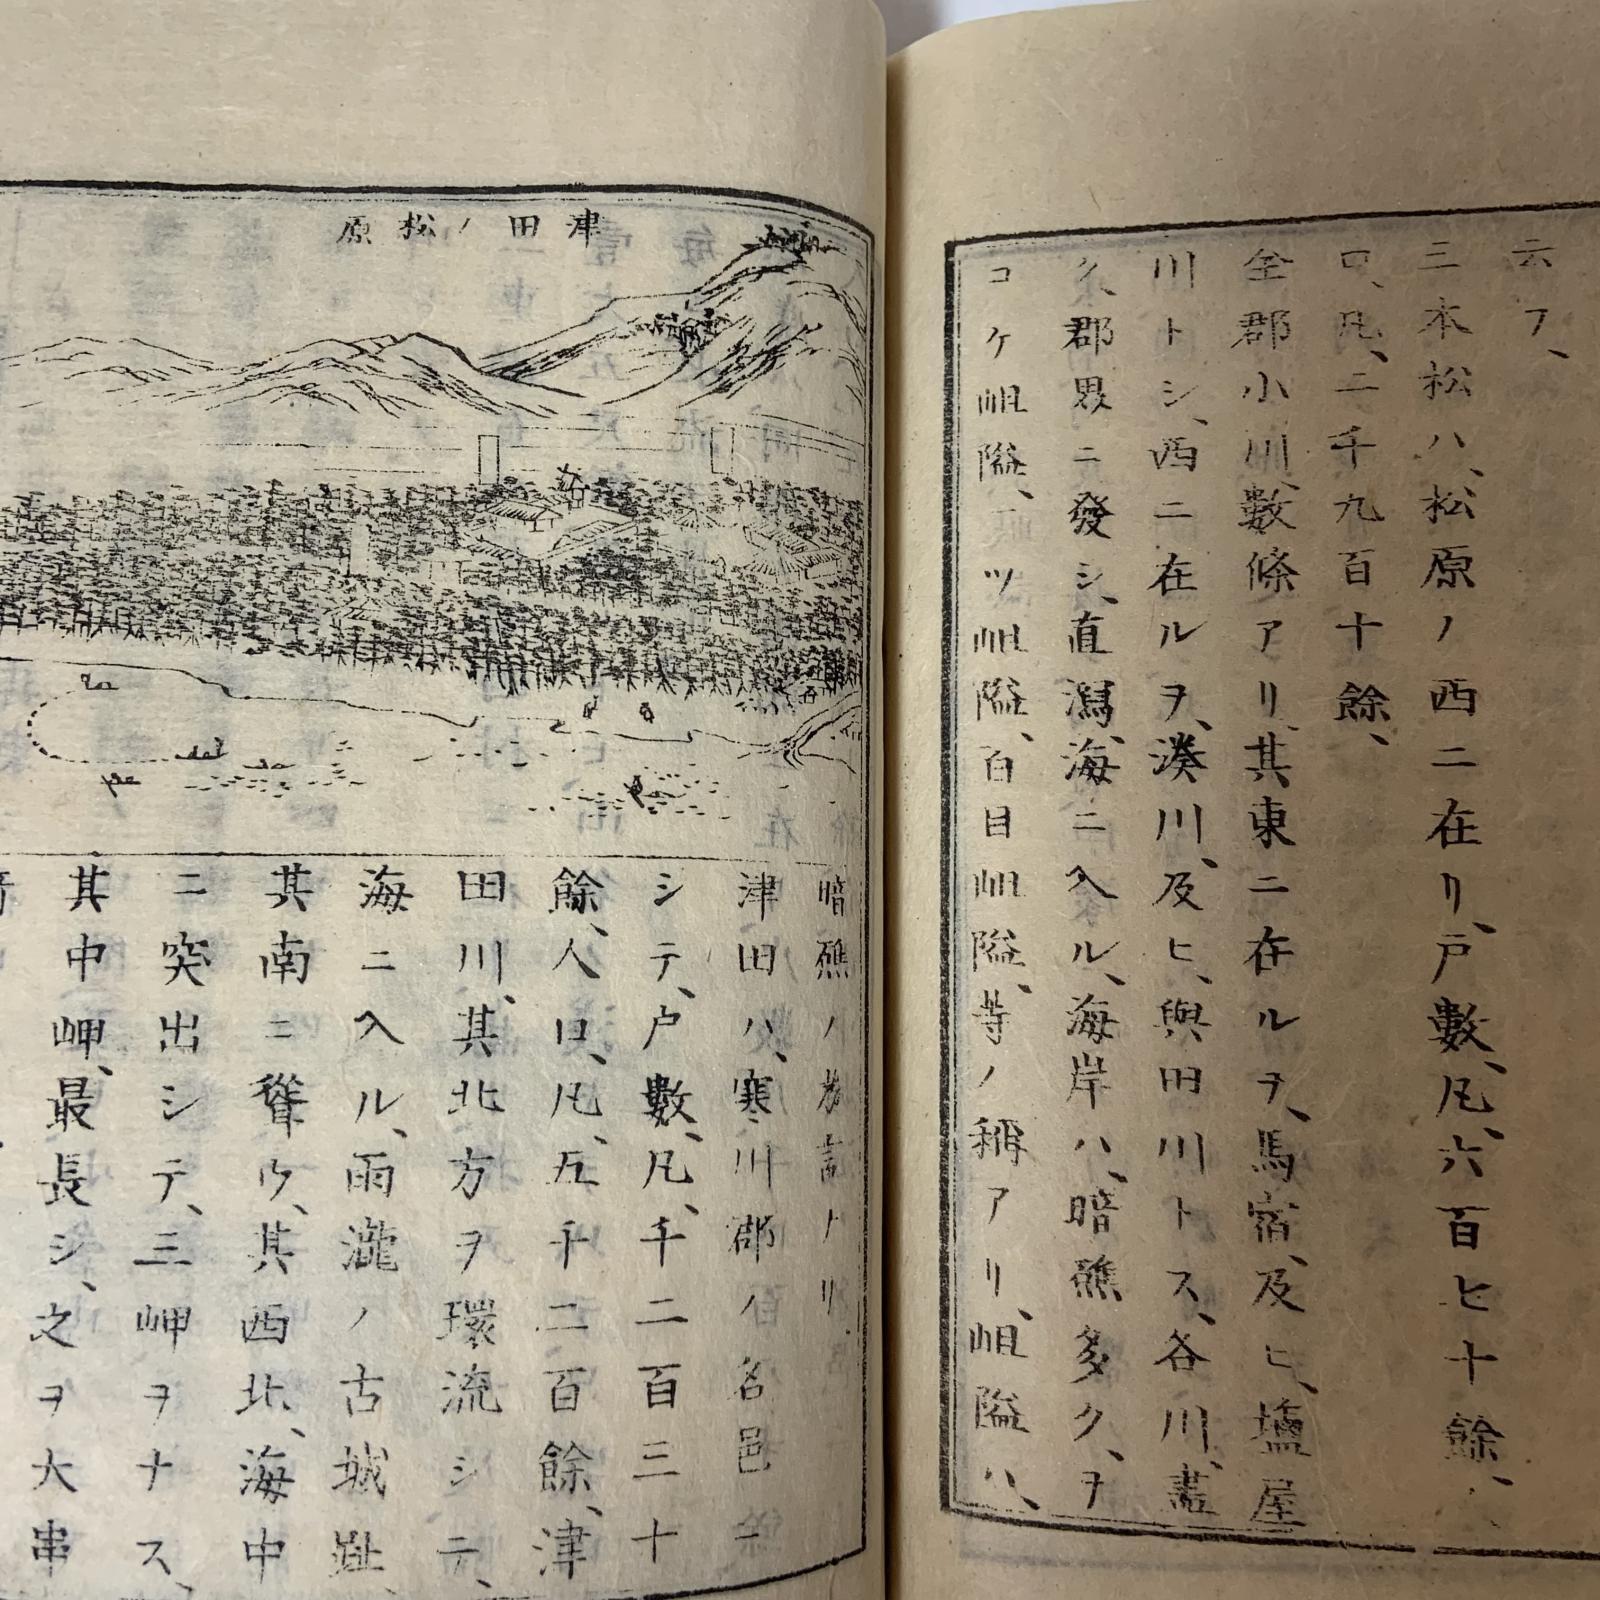 云フ、
三本松ハ、松原ノ西ニ在リ、戸數、凡、六百七十餘、
口、凡、二千九百十餘、
全郡小川、數條アリ、其東ニ在ルヲ、馬宿、及ヒ、塩屋
川トシ、西ニ在ルヲ、湊川、及ヒ、與田川トス、各川、盡
ク、郡界ニ發シ、直瀉、海ニ入ル、海岸ハ、暗礁多ク、ヲ
コケ岨隘、ツ岨隘、百目岨隘、等ノ稱アリ、岨隘ハ、
津田ノ松原
暗礁ノ方言ナリ
津田ハ、寒川郡ノ名邑ニ
シテ、戸數、凡、千二百三十
餘、人口、凡、五千二百餘、津
田川、其北方ヲ環流シテ、
海ニ入ル、雨瀧ノ古城趾、
其南ニ聳ヱ、其西北、海中
ニ突出シテ、三岬ヲナス、
其中岬、最長シ、之ヲ大串